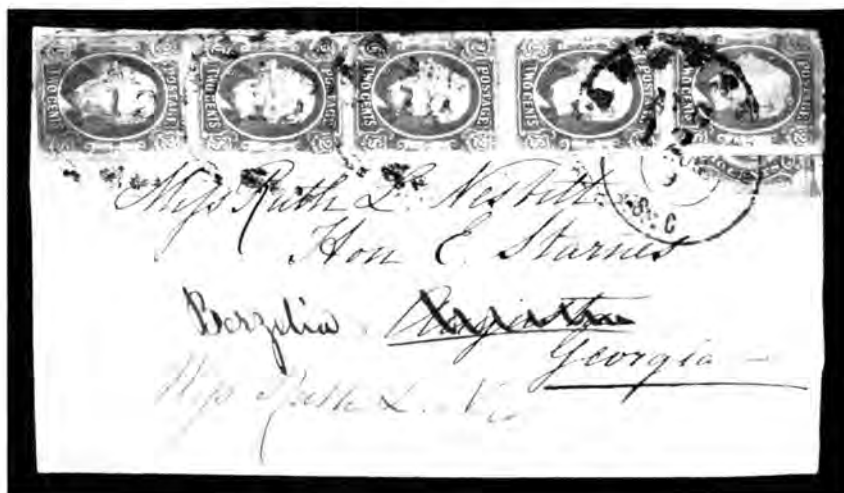 TWO CENTS POSTAGE TWO CENTS POSTAGE TWO CENTS POSTAGE TWO CENTS POSTAGE TWO CENTS POSTAGE
S. C
Miss Ruth L. Nesbitt
Hon E Starnes
Berzelia Augusta
Georgia
Miss Ruth L. N